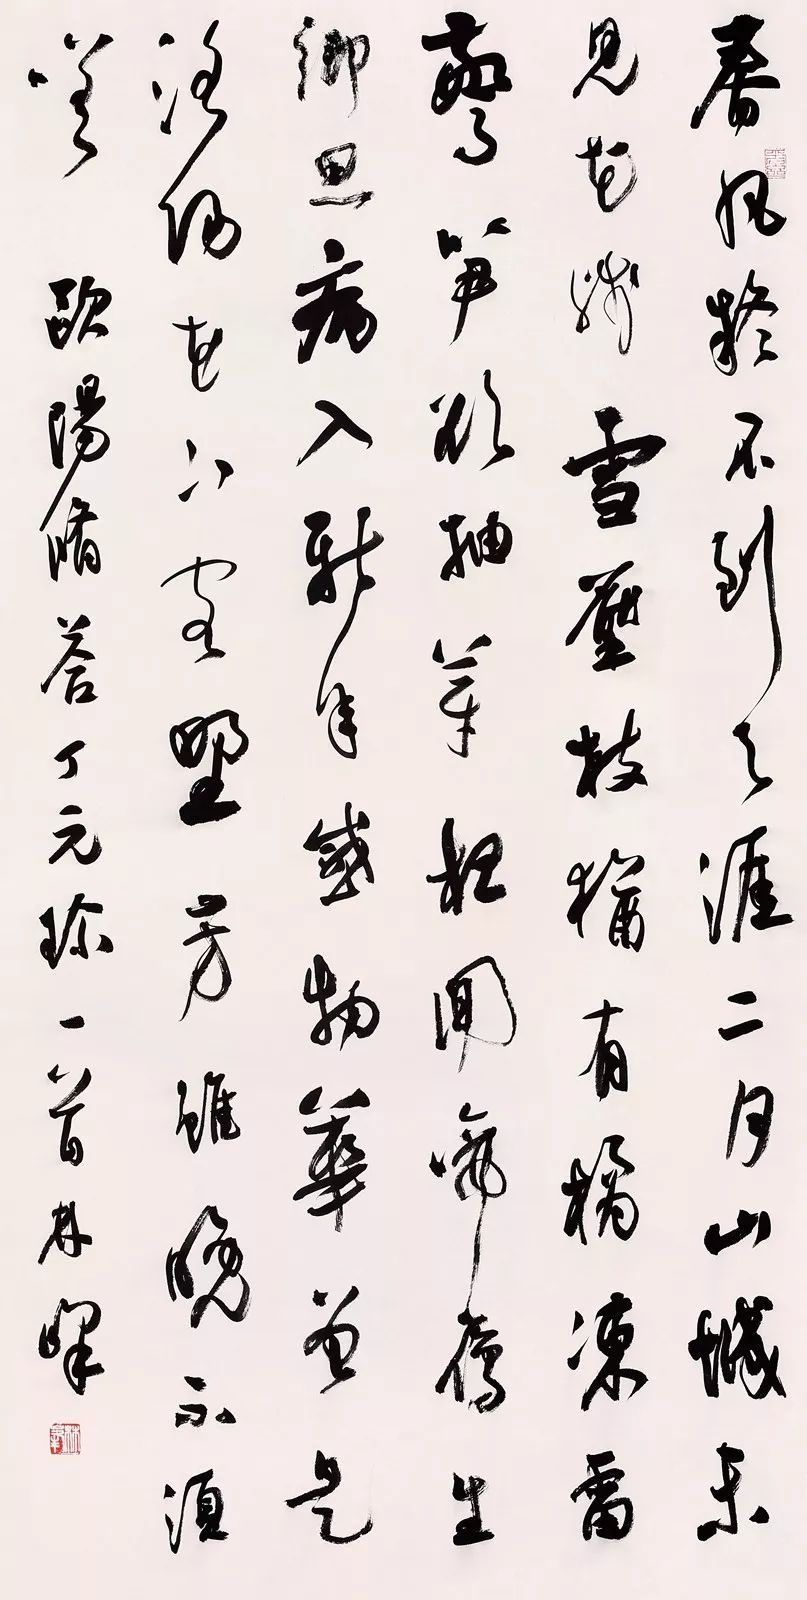 春風疑不到天涯二月山城未
見花殘雪壓枝猶有橘凍雷
驚笋欲抽芽夜聞啼雁生
鄉思病入新年感物華曾是
洛陽花下客野芳雖晚不須
嗟 歐陽脩答丁元珍一首林暉